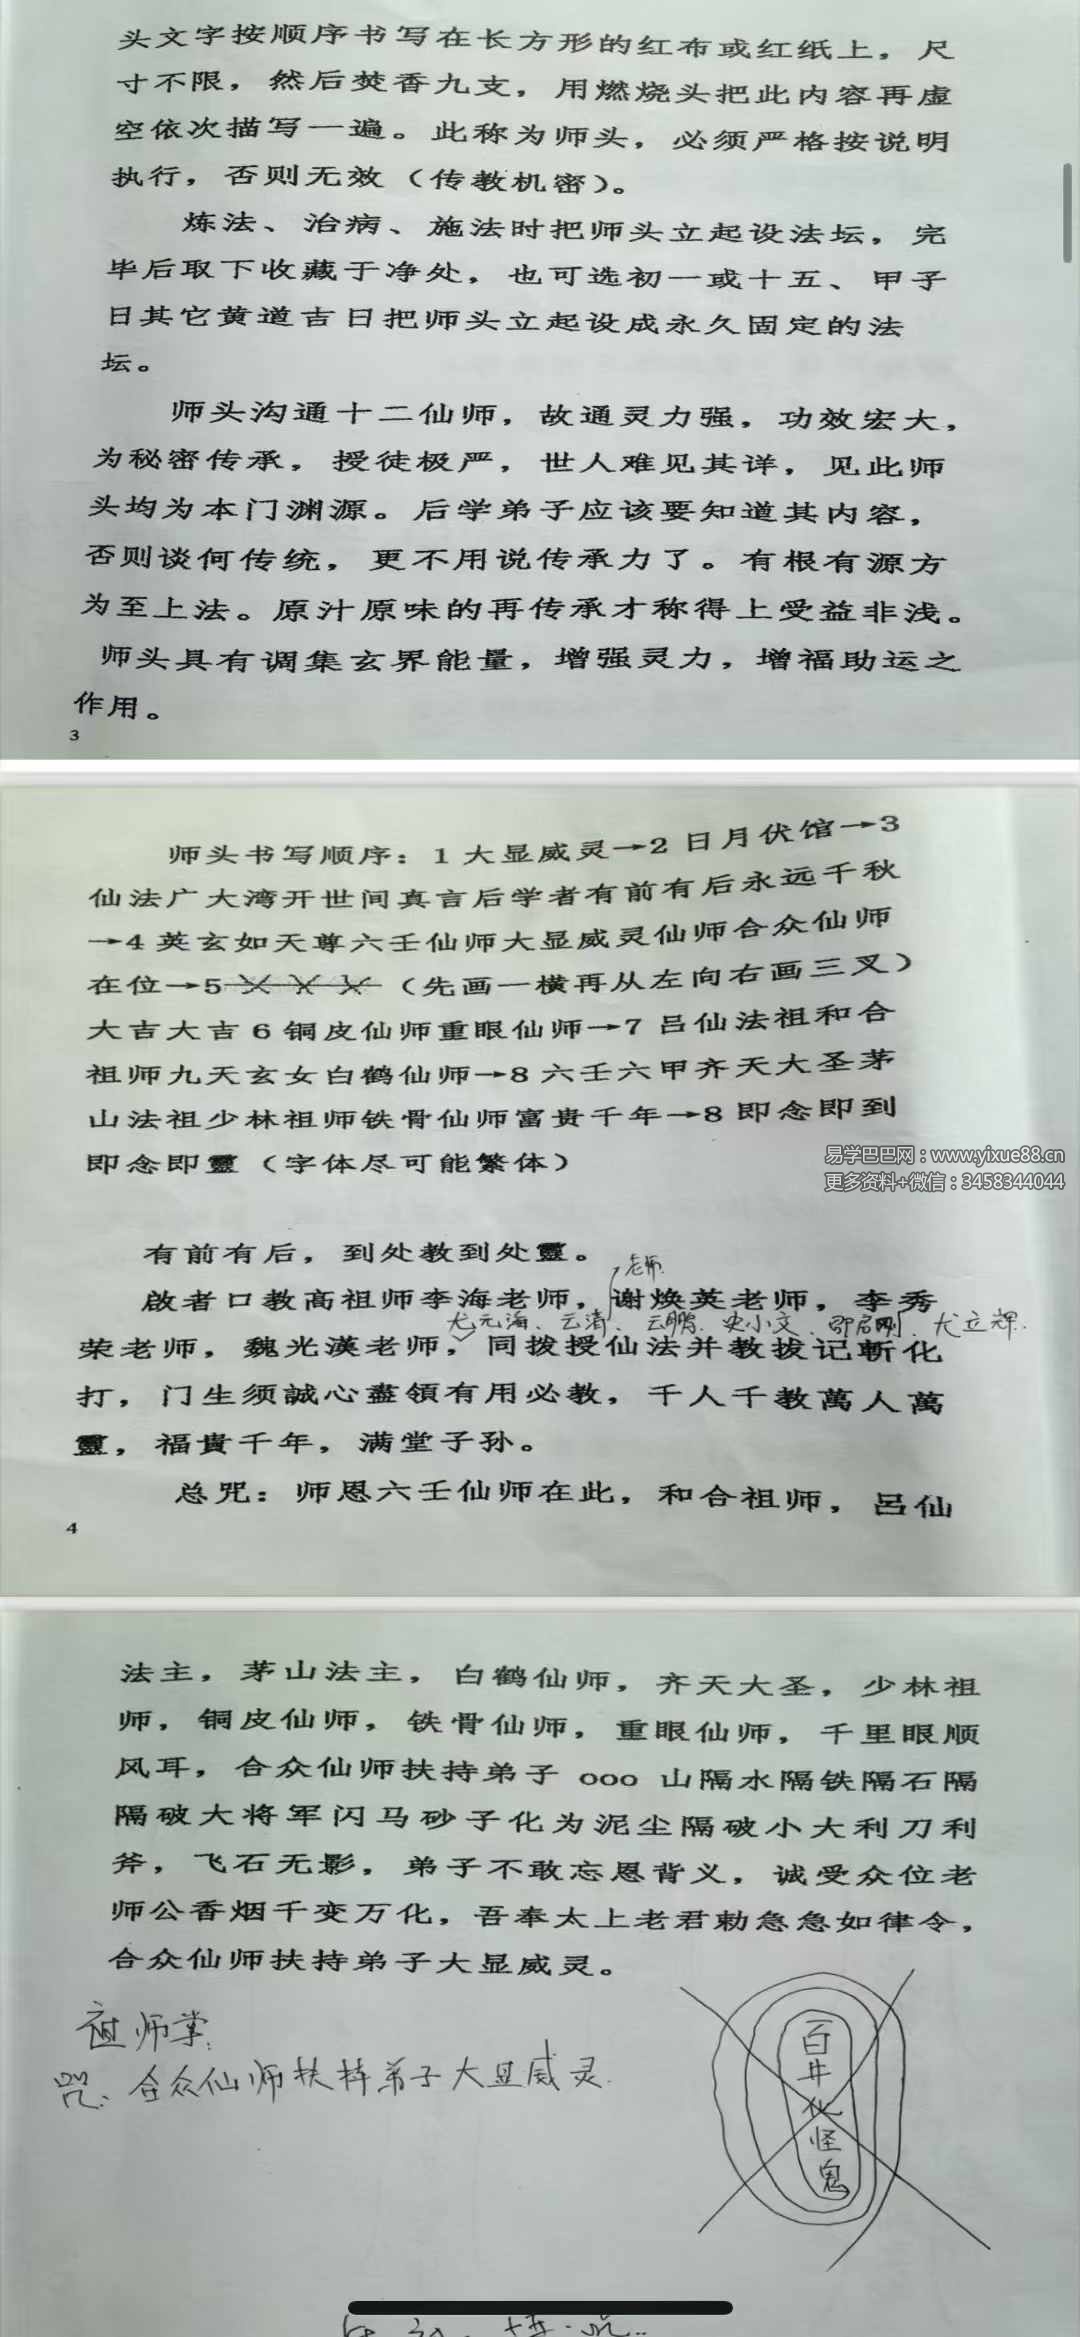 头文字按顺序书写在长方形的红布或红纸上，尺
寸不限，然后焚香九支，用燃烧头把此内容再虚
空依次描写一遍。此称为师头，必须严格按说明
执行，否则无效（传教机密）。
炼法、治病、施法时把师头立起设法坛，完
毕后取下收藏于净处，也可选初一或十五、甲子
日其它黄道吉日把师头立起设成永久固定的法
坛。
师头沟通十二仙师，故通灵力强，功效宏大，
为秘密传承，授徒极严，世人难见其详，见此师
头均为本门渊源。后学弟子应该要知道其内容，
否则谈何传统，更不用说传承力了。有根有源方
为至上法。原汁原味的再传承才称得上受益非浅。
师头具有调集玄界能量，增强灵力，增福助运之
作用。
3
师头书写顺序：1 大显威灵→2 日月伏馆→3
仙法广大湾开世间真言后学者有前有后永远千秋
→4 英玄如天尊六壬仙师大显威灵仙师合众仙师
在位→5 （先画一横再从左向右画三叉）
大吉大吉 6 铜皮仙师重眼仙师→7 吕仙法祖和合
祖师九天玄女白鹤仙师→8 六壬六甲齐天大圣茅
山法祖少林祖师铁骨仙师富贵千年→8 即念即到
即念即靈（字体尽可能繁体）
易学巴巴网：www.yixue88.cn
更多资料+微信：3458344044
有前有后，到处教到处靈。
老师
啟者口教高祖师李海老师，谢焕英老师，李秀
尤元海、云清、云鹏、史小文、邵启刚、尤立辉.
荣老师，魏光漢老师，同拨授仙法并教拔记斬化
打，门生须誠心盡領有用必教，千人千教萬人萬
靈，福貴千年，满堂子孙。
总咒：师恩六壬仙师在此，和合祖师，吕仙
4
法主，茅山法主，白鹤仙师，齐天大圣，少林祖
师，铜皮仙师，铁骨仙师，重眼仙师，千里眼顺
风耳，合众仙师扶持弟子 ooo 山隔水隔铁隔石隔
隔破大将军闪马砂子化为泥尘隔破小大利刀利
斧，飞石无影，弟子不敢忘恩背义，诚受众位老
师公香烟千变万化，吾奉太上老君勅急急如律令，
合众仙师扶持弟子大显威灵。
祖师掌：
咒：合众仙师扶持弟子大显威灵.
百井化怪鬼